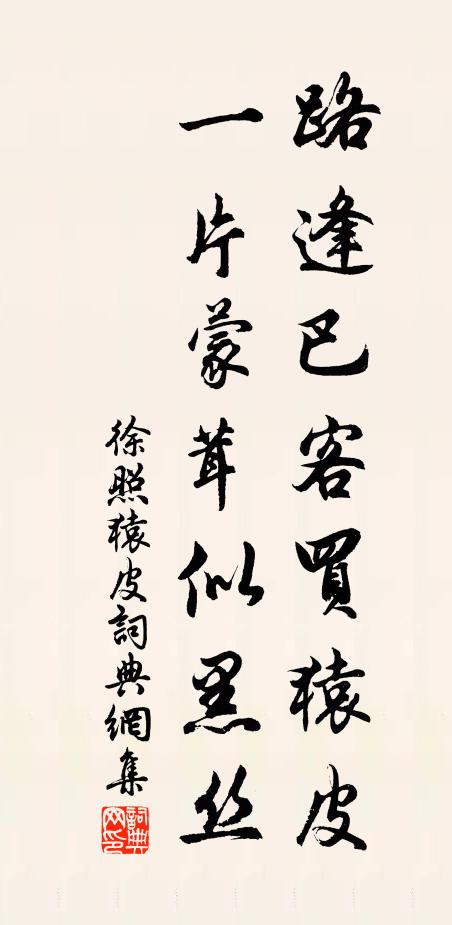 路逢巴客買猿皮
一片蒙茸似黑丝
徐照猿皮詞典網集
詞典網印